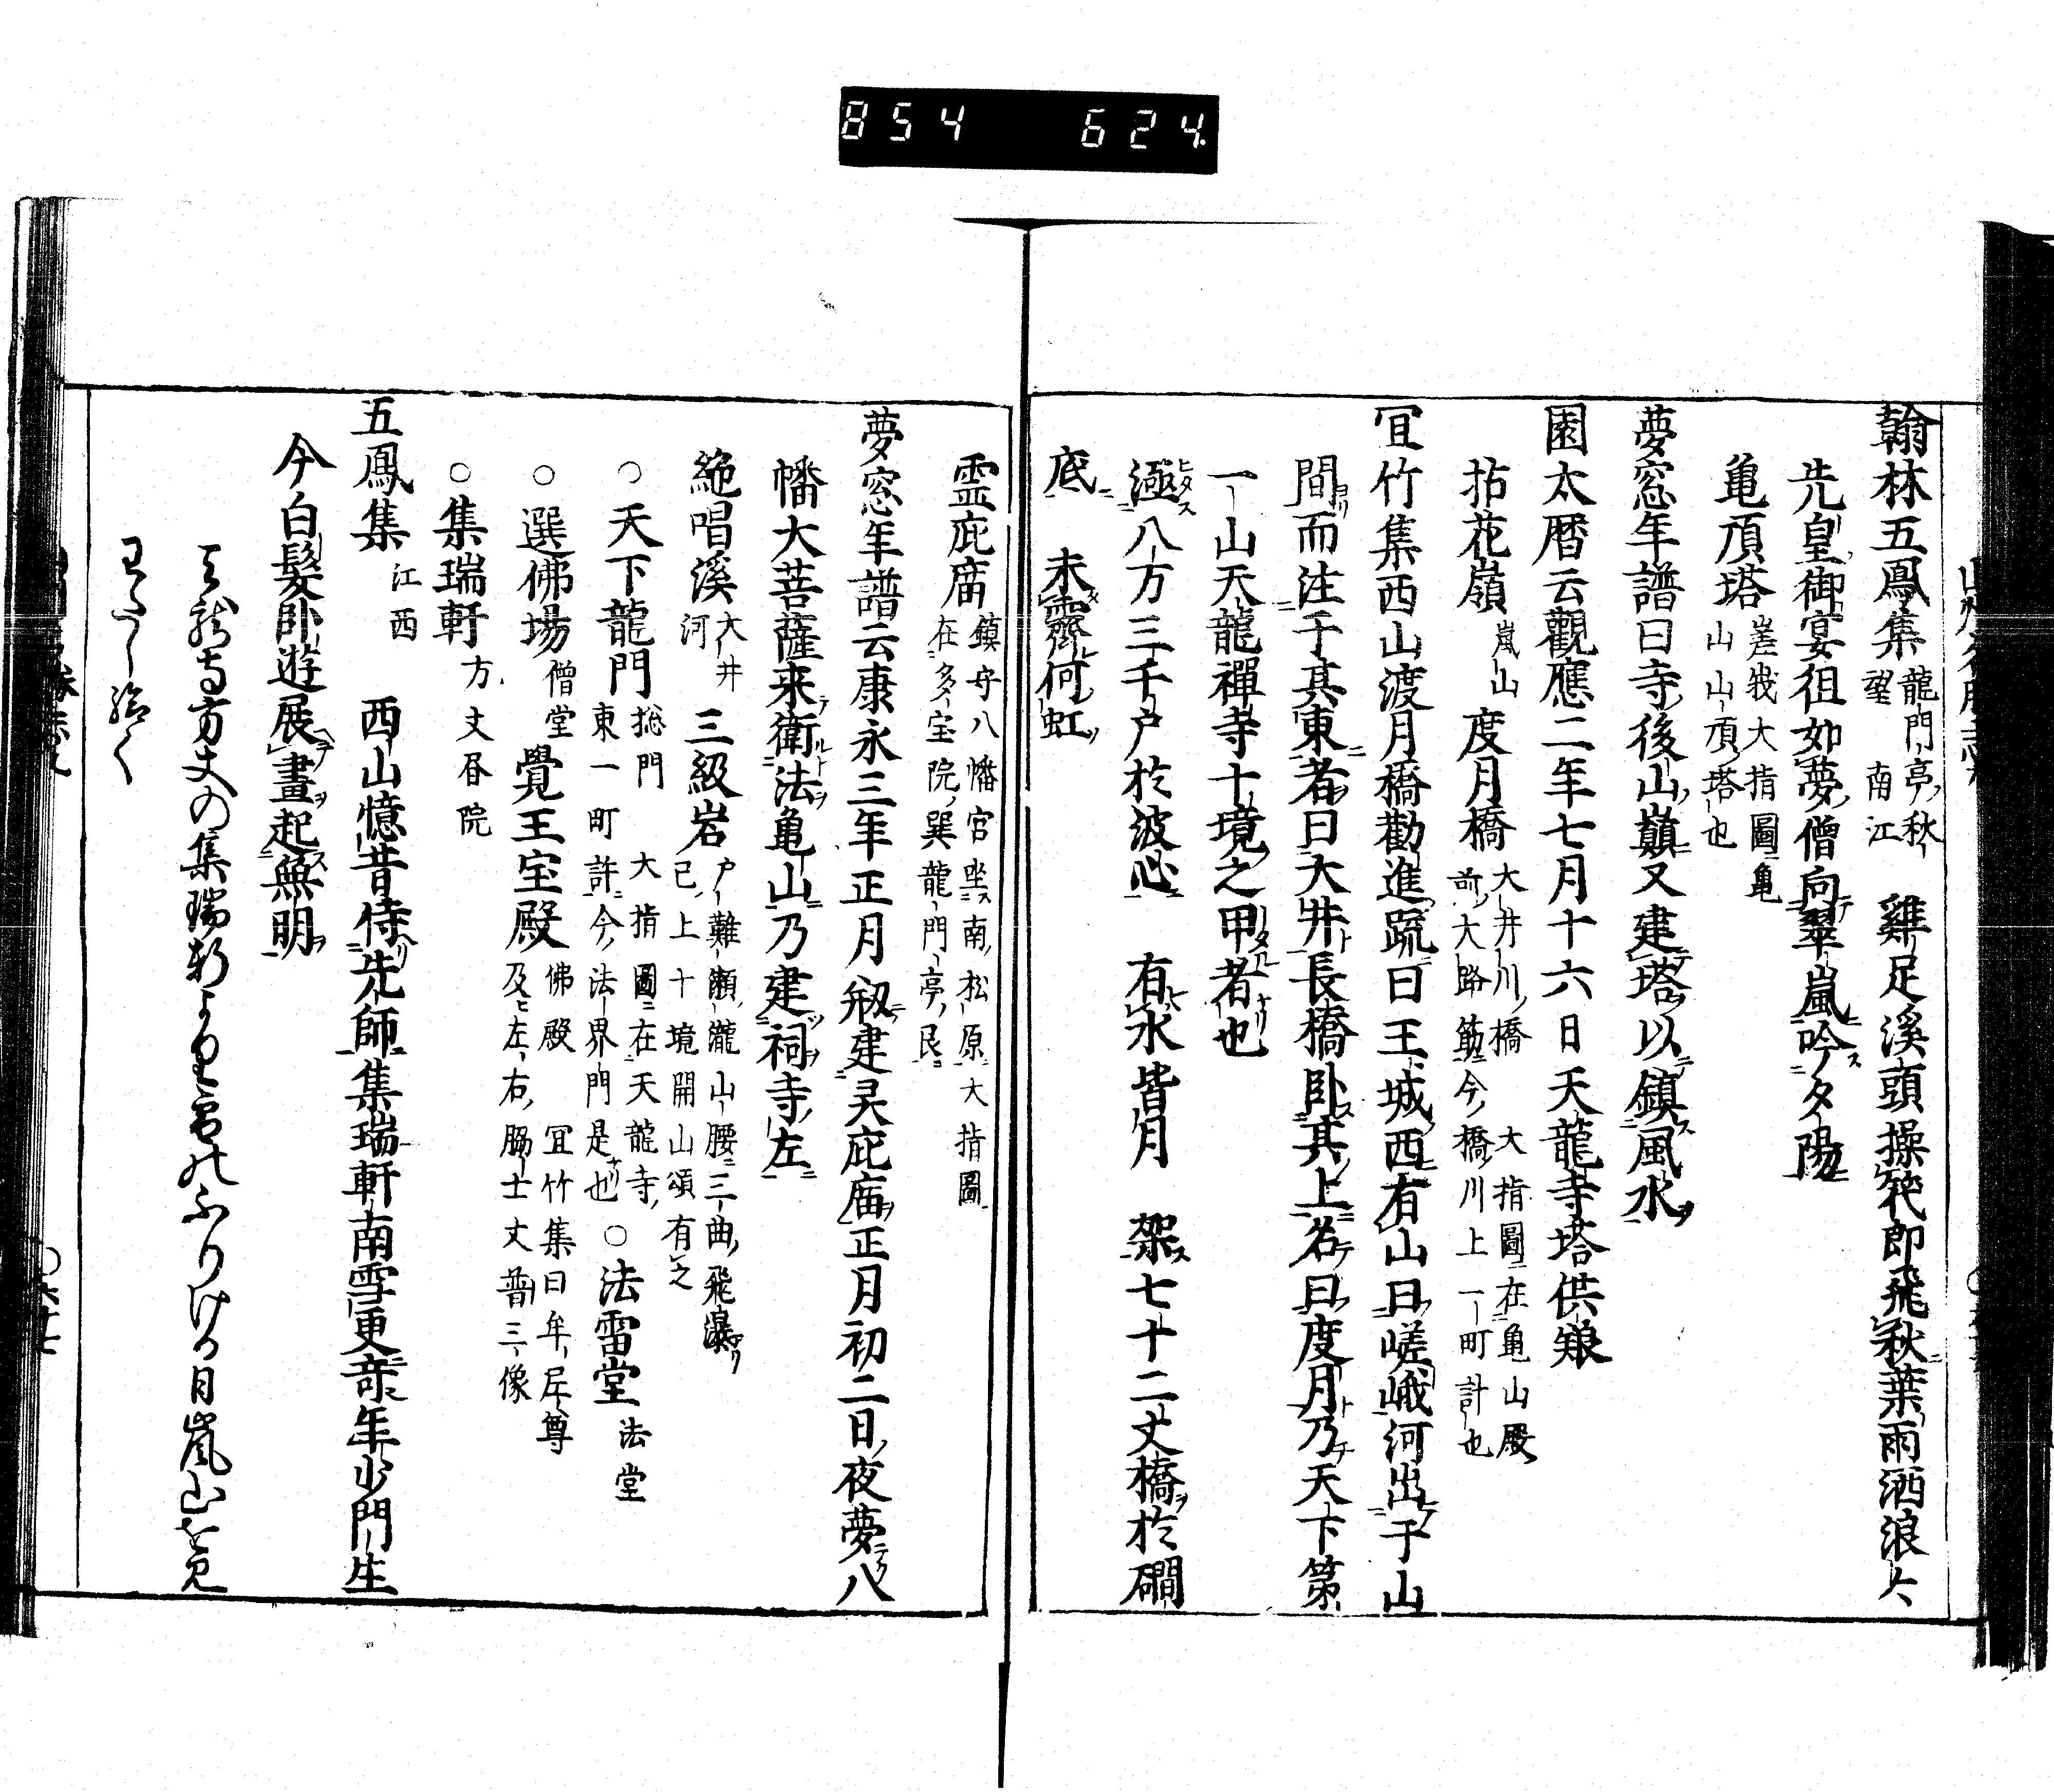 854 624.
翰林五鳳集 龍門亭秋望 南江 雞足溪頭操筏郎飛秋葉雨洒浪六
先皇御宴徂如夢僧向翠嵐吟夕陽
亀頂塔 嵯峩大指圖亀山山頂塔也
夢窓年譜曰寺後山巓又建塔以鎮風水
園太暦云觀應二年七月十六日天龍寺塔供
拈花嶺 嵐山 度月橋 大井川橋 大指圖在亀山殿前大路筋今橋川上一町計也
冝竹集西山渡月橋勸進䟽曰王城西有山曰嵯峨河出于山
間而注于其東者曰大井長橋卧其上名曰度月乃天下第
一山天龍禪寺十境之甲者也
極八方三千户於波心 有水皆月 架七十二丈橋於磵
底 未霽何虹
霊庇廟 鎮守八幡宮坐南松原大指圖在多宝院巽龍門亭艮
夢窓年譜云康永三年正月剏建灵庇庙正月初二日夜夢八
幡大菩薩来衛法亀山乃建祠寺左
絶唱溪 大井河 三級岩 戸難瀬瀧山腰三曲飛瀑 已上十境開山頌有之
○天下龍門 惣門 大指圖在天龍寺東一町許今法界門是也 ○法雷堂 法堂
○選佛場 僧堂 覺王宝殿 佛殿 冝竹集曰牟尼尊及左右脇士丈普三像
○集瑞軒 方丈昼院
五鳳集 江西 西山憶昔侍先師集瑞軒南雪更竒年少門生
今白髮卧遊展畫起無明
天龍寺方丈の集瑞軒より雪のふりける日嵐山を見